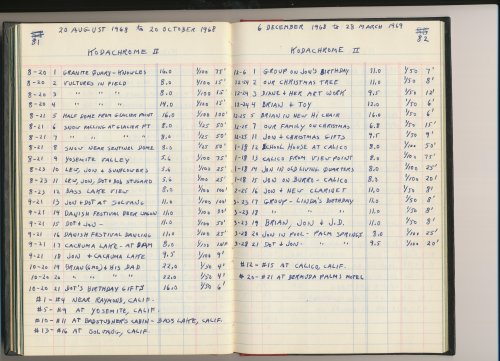 81
20 AUGUST 1968 to 20 OCTOBER 1968
KODACHROME II
8-20 1 GRANITE QUARRY - KNOWLES 16.0 1/100 75'
8-20 2 VULTURES IN FIELD 8.0 1/100 15'
8-20 3 " " " 8.0 1/100 15'
8-20 4 " " " 14.0 1/100 15'
8-21 5 HALF DOME FROM GLACIER POINT 16.0 1/100 100'
8-21 6 SNOW FALLING AT GLACIER PT 8.0 1/25 50'
8-21 7 " " " " 8.0 1/25 50'
8-21 8 SNOW NEAR SENTINEL DOME 8.0 1/100 50'
8-21 9 YOSEMITE VALLEY 5.6 1/100 75'
8-23 10 LEW, JON + SUNFLOWERS 5.6 1/100 25'
8-23 11 LEW, JON, DOT + BOB STUDARD 5.6 1/100 25'
8-23 12 BASS LAKE VIEW 8.0 1/100 100'
9-21 13 JON + DOT AT SOLVANG 11.0 1/100
9-21 14 DANISH FESTIVAL BEER WAGON 11.0 1/100
9-21 15 DOT + JON 11.0 1/100 50'
9-21 16 DANISH FESTIVAL DANCING 11.0 1/100 25'
9-21 17 CACHUMA LAKE - AT DAM 8.0 1/100
9-21 18 JON + CACHUMA LAKE 9.5 1/100 4'
10-20 19 BRIAN (6MO) + HIS DAD 22.0 1/50 4'
10-20 20 " " " " 22.0 1/50 4'
10-20 21 DOT'S BIRTHDAY GIFTS 16.0 1/50 6'
#1 - #4 NEAR RAYMOND, CALIF.
#5 - #9 AT YOSEMITE, CALIF.
#10 - #11 AT CABIN - BASS LAKE, CALIF.
#13 - #16 AT SOLVANG, CALIF.
82
6 DECEMBER 1968 to 28 MARCH 1969
KODACHROME II
12-6 1 GROUP ON JON'S BIRTHDAY 11.0 1/50 7'
12-24 2 OUR CHRISTMAS TREE 11.0 1/50 8'
12-24 3 DIANE + HER ART WORK 9.5 1/50 12'
12-24 4 BRIAN + TOY 12.0 1/50 6'
12-25 5 BRIAN IN NEW HI CHAIR 16.0 1/50 6'
12-25 7 OUR FAMILY ON CHRISTMAS 6.8 1/50 15'
12-25 11 JON + CHRISTMAS GIFTS 9.5 1/50 9'
1-18 12 SCHOOL HOUSE AT CALICO 8.0 1/100 50'
1-18 13 CALICO FROM VIEW POINT 8.0 1/100 75'
1-18 14 JON IN OLD LIVING QUARTERS 8.0 1/100 25'
1-18 15 JON ON BURRO - CALICO 8.0 1/100 20'
2-25 16 JON + NEW CLARINET 11.0 1/50 8'
3-23 17 GROUP - LINDA'S BIRTHDAY 11.0 1/50 8'
3-23 18 " " " 11.0 1/50 8'
3-23 19 BRIAN, JON + J.D. 11.0 1/50 8'
3-28 20 JON IN POOL - PALM SPRINGS 8.0 1/100 25'
3-28 21 DOT + JON " " 9.5 1/100 20'
#12 - #15 AT CALICO, CALIF.
#20 - #21 AT BERMUDA PALMS MOTEL